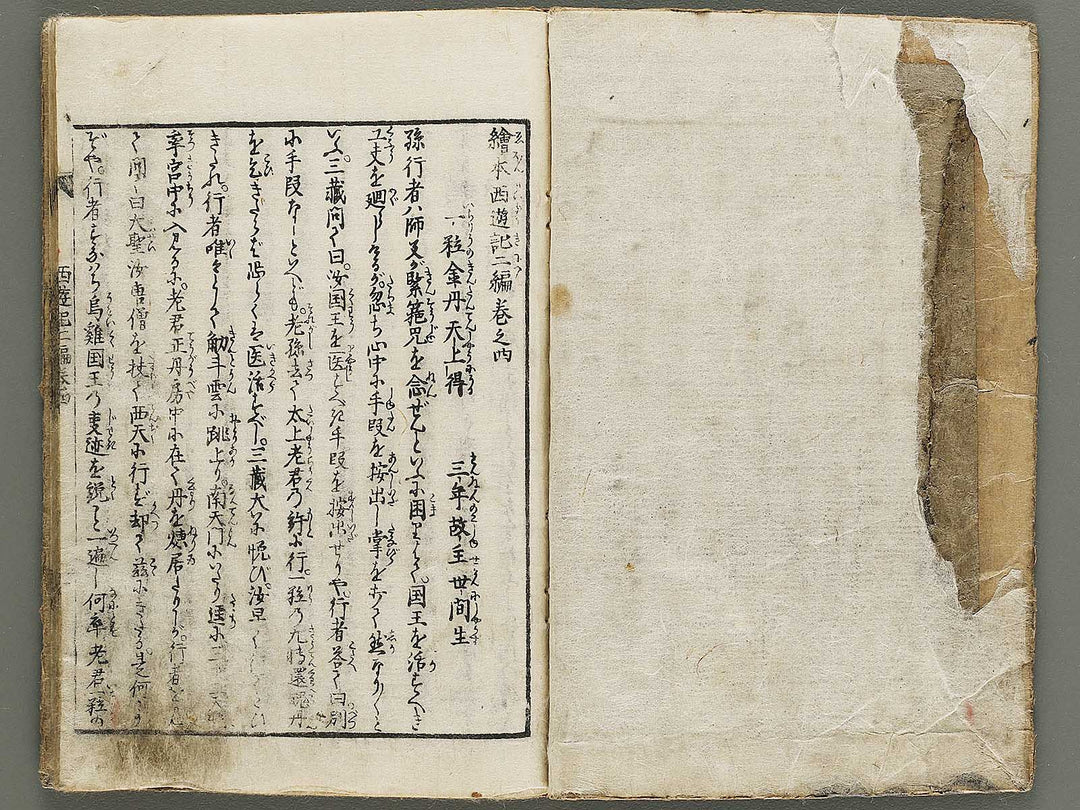 繪本西遊記二編巻之四
一粒金丹天上得 三年故主世間生
孫行者ハ師父が緊箍咒を念ぜんといふに困りはて。国王を活すべき
工夫を廻しけるが。忽ち心中に手段を按出し掌をたゝく然なり〳〵と
いふ。三藏問て曰。汝国王を医すべき手段を按出せりや行者答て曰別
に手段なしといへども。老孫去て太上老君の許に行。一粒の九轉還魂丹
を乞きたらば恐らくは医活すべし。三藏大に悦び。汝早く
きたれ。行者唯々とうく觔斗雲に跳上り。南天門にいたり
率宮中に入見るに。老君正丹房中に在て丹を煉居たりしが。行者
て問て曰大聖汝唐僧を扶て西天に行ず却て茲にきたるは是何
ぞや。行者すなはち烏雞国王の事迹を説こと一遍し何卒老君一粒の
西遊記二編巻四